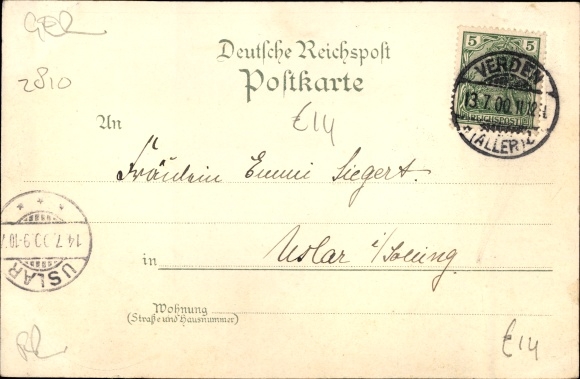 2810
Deutsche Reichspost
Postkarte
5 5
REICHSPOST
VERDEN
13.7.00.11-12V.
* (ALLER) 2 *
£14
An
Fräulein Emmi Siegert.
in Uslar i/Solling
USLAR
14.7.00.9-10.V
* * *
Wohnung
(Straße und Hausnummer)
£14